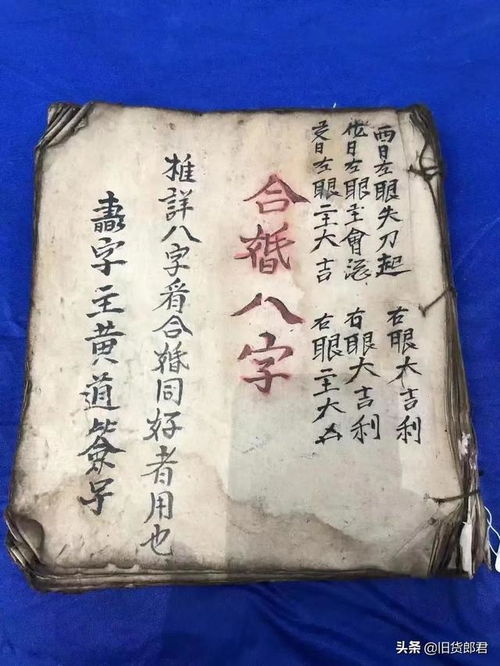 酉日左眼失刀起 右眼大吉利
日左眼主會 右眼大吉利
日左眼主大吉 右眼主大凶
合婚八字
推詳八字看合婚同好者用也
字主黄道
头条 @旧货郎君